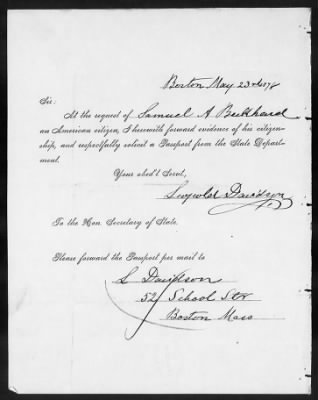 Boston May 23rd 1878
Sir:
At the request of Samuel A
an American citizen, I herewith forward evidence of his citizen-
ship, and respectfully solicit a Passport from the State Depart-
ment.
Your obed't Servt,
Leopold Davidson
To the Hon. Secretary of State.
Please forward the Passport per mail to
L Davidson
52 School Str
Boston Mass